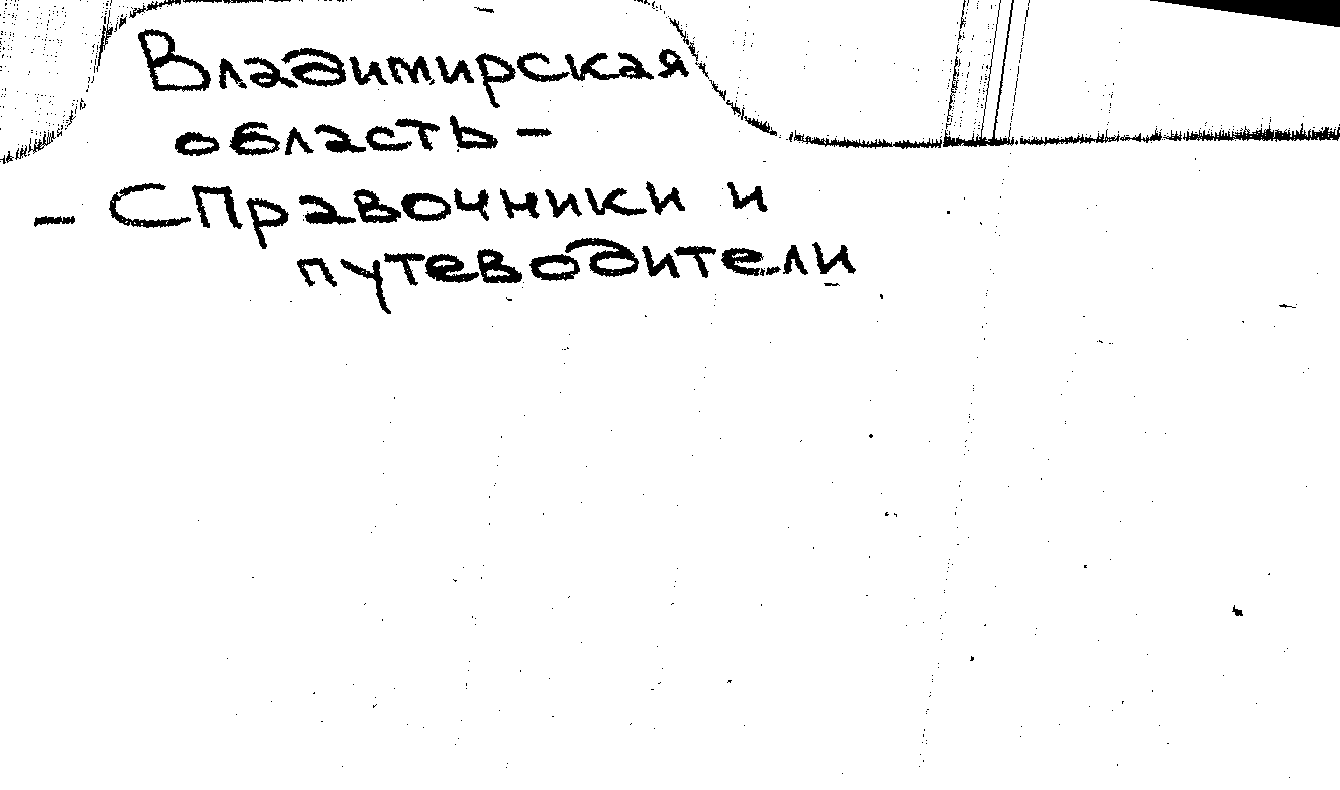 Владимирская
область -
- Справочники и
путеводители